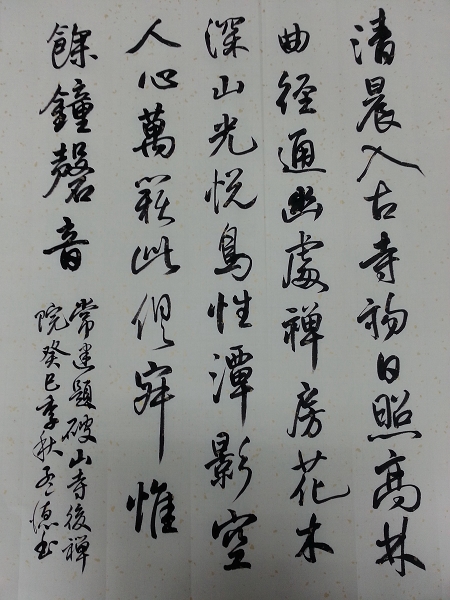 清晨入古寺初日照高林
曲径通幽處禅房花木
深山光悦鳥性潭影空
人心萬籟此俱寂惟
餘鐘磬音
常建題破山寺後禅
院癸巳季秋德书